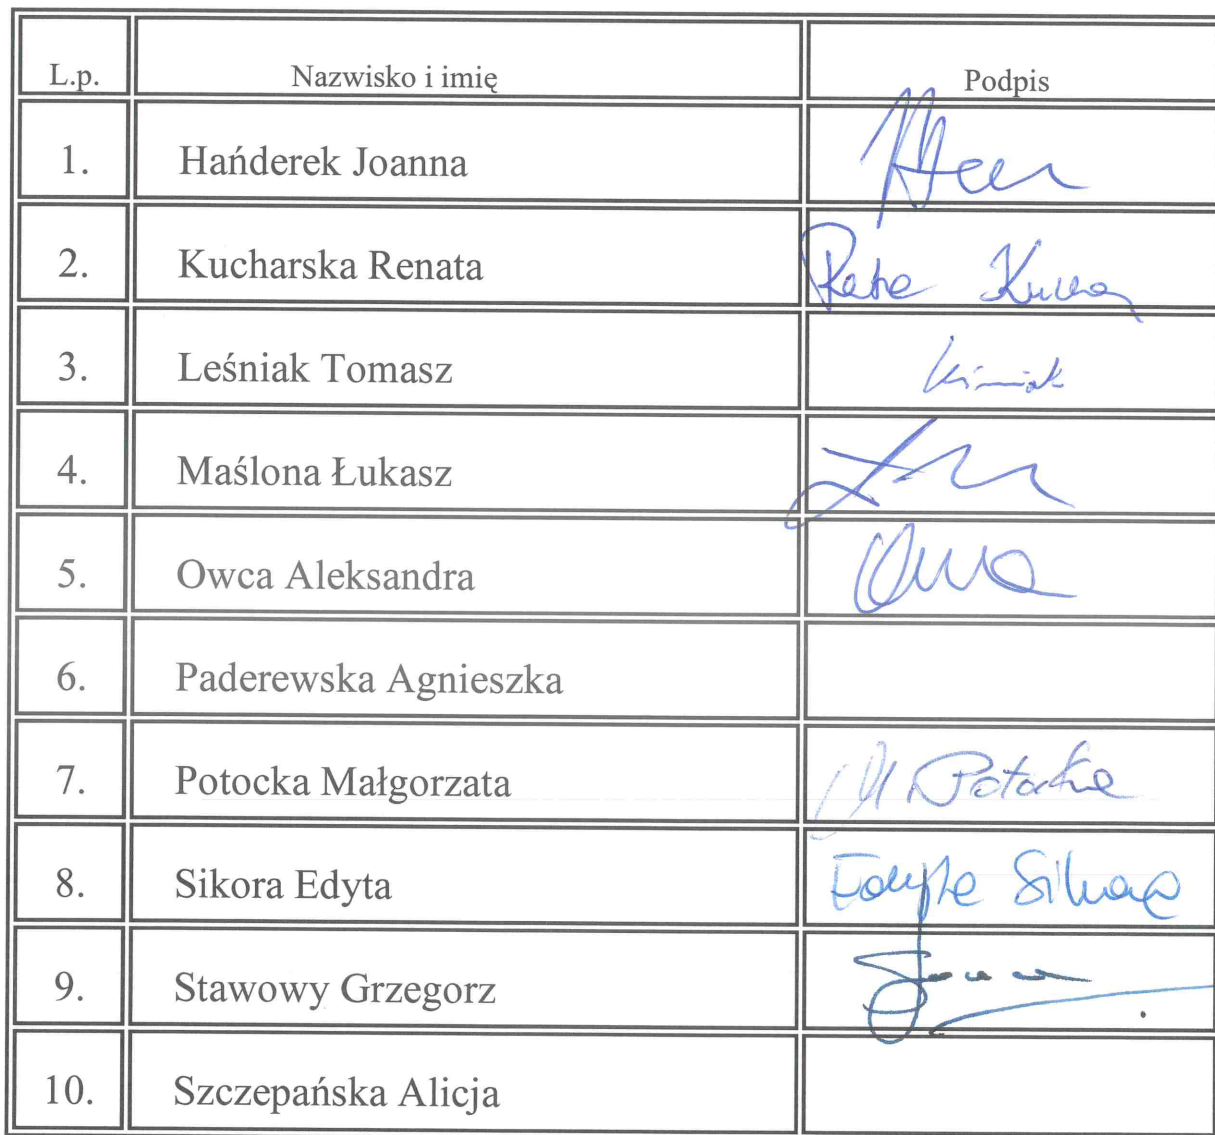 L.p. Nazwisko i imię Podpis
1. Hańderek Joanna
2. Kucharska Renata
3. Leśniak Tomasz
4. Maślona Łukasz
5. Owca Aleksandra
6. Paderewska Agnieszka
7. Potocka Małgorzata M Potocka
8. Sikora Edyta Edyta Sikora
9. Stawowy Grzegorz
10. Szczepańska Alicja